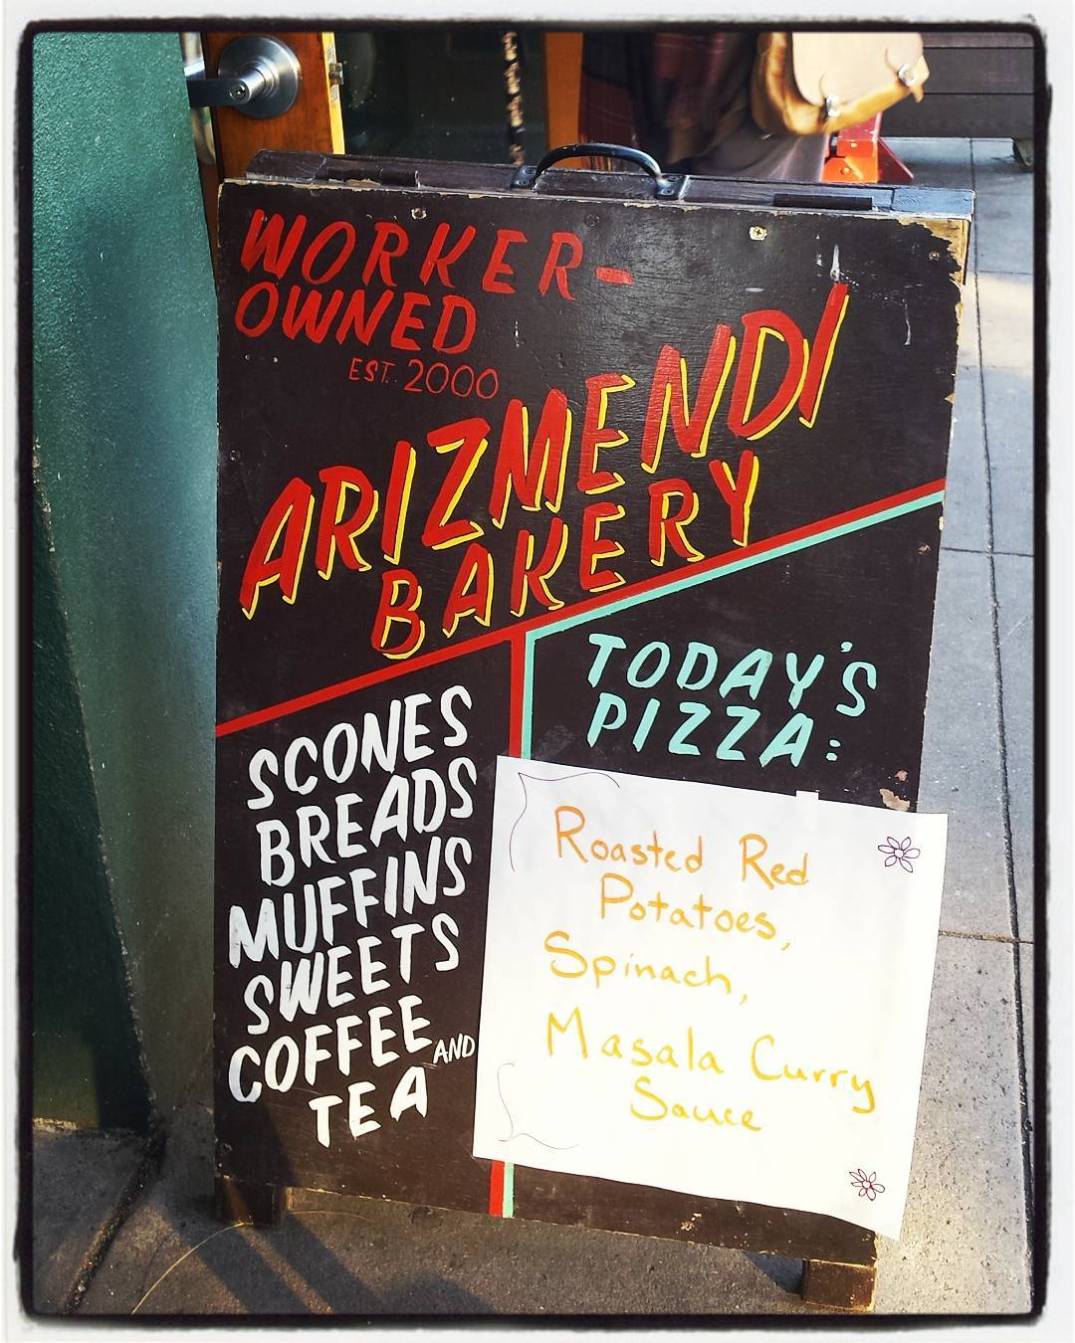 WORKER-
OWNED
EST. 2000
ARIZMENDI
BAKERY
SCONES
BREADS
MUFFINS
SWEETS
COFFEE AND
TEA
TODAY'S
PIZZA:
Roasted Red
Potatoes,
Spinach,
Masala Curry
Sauce